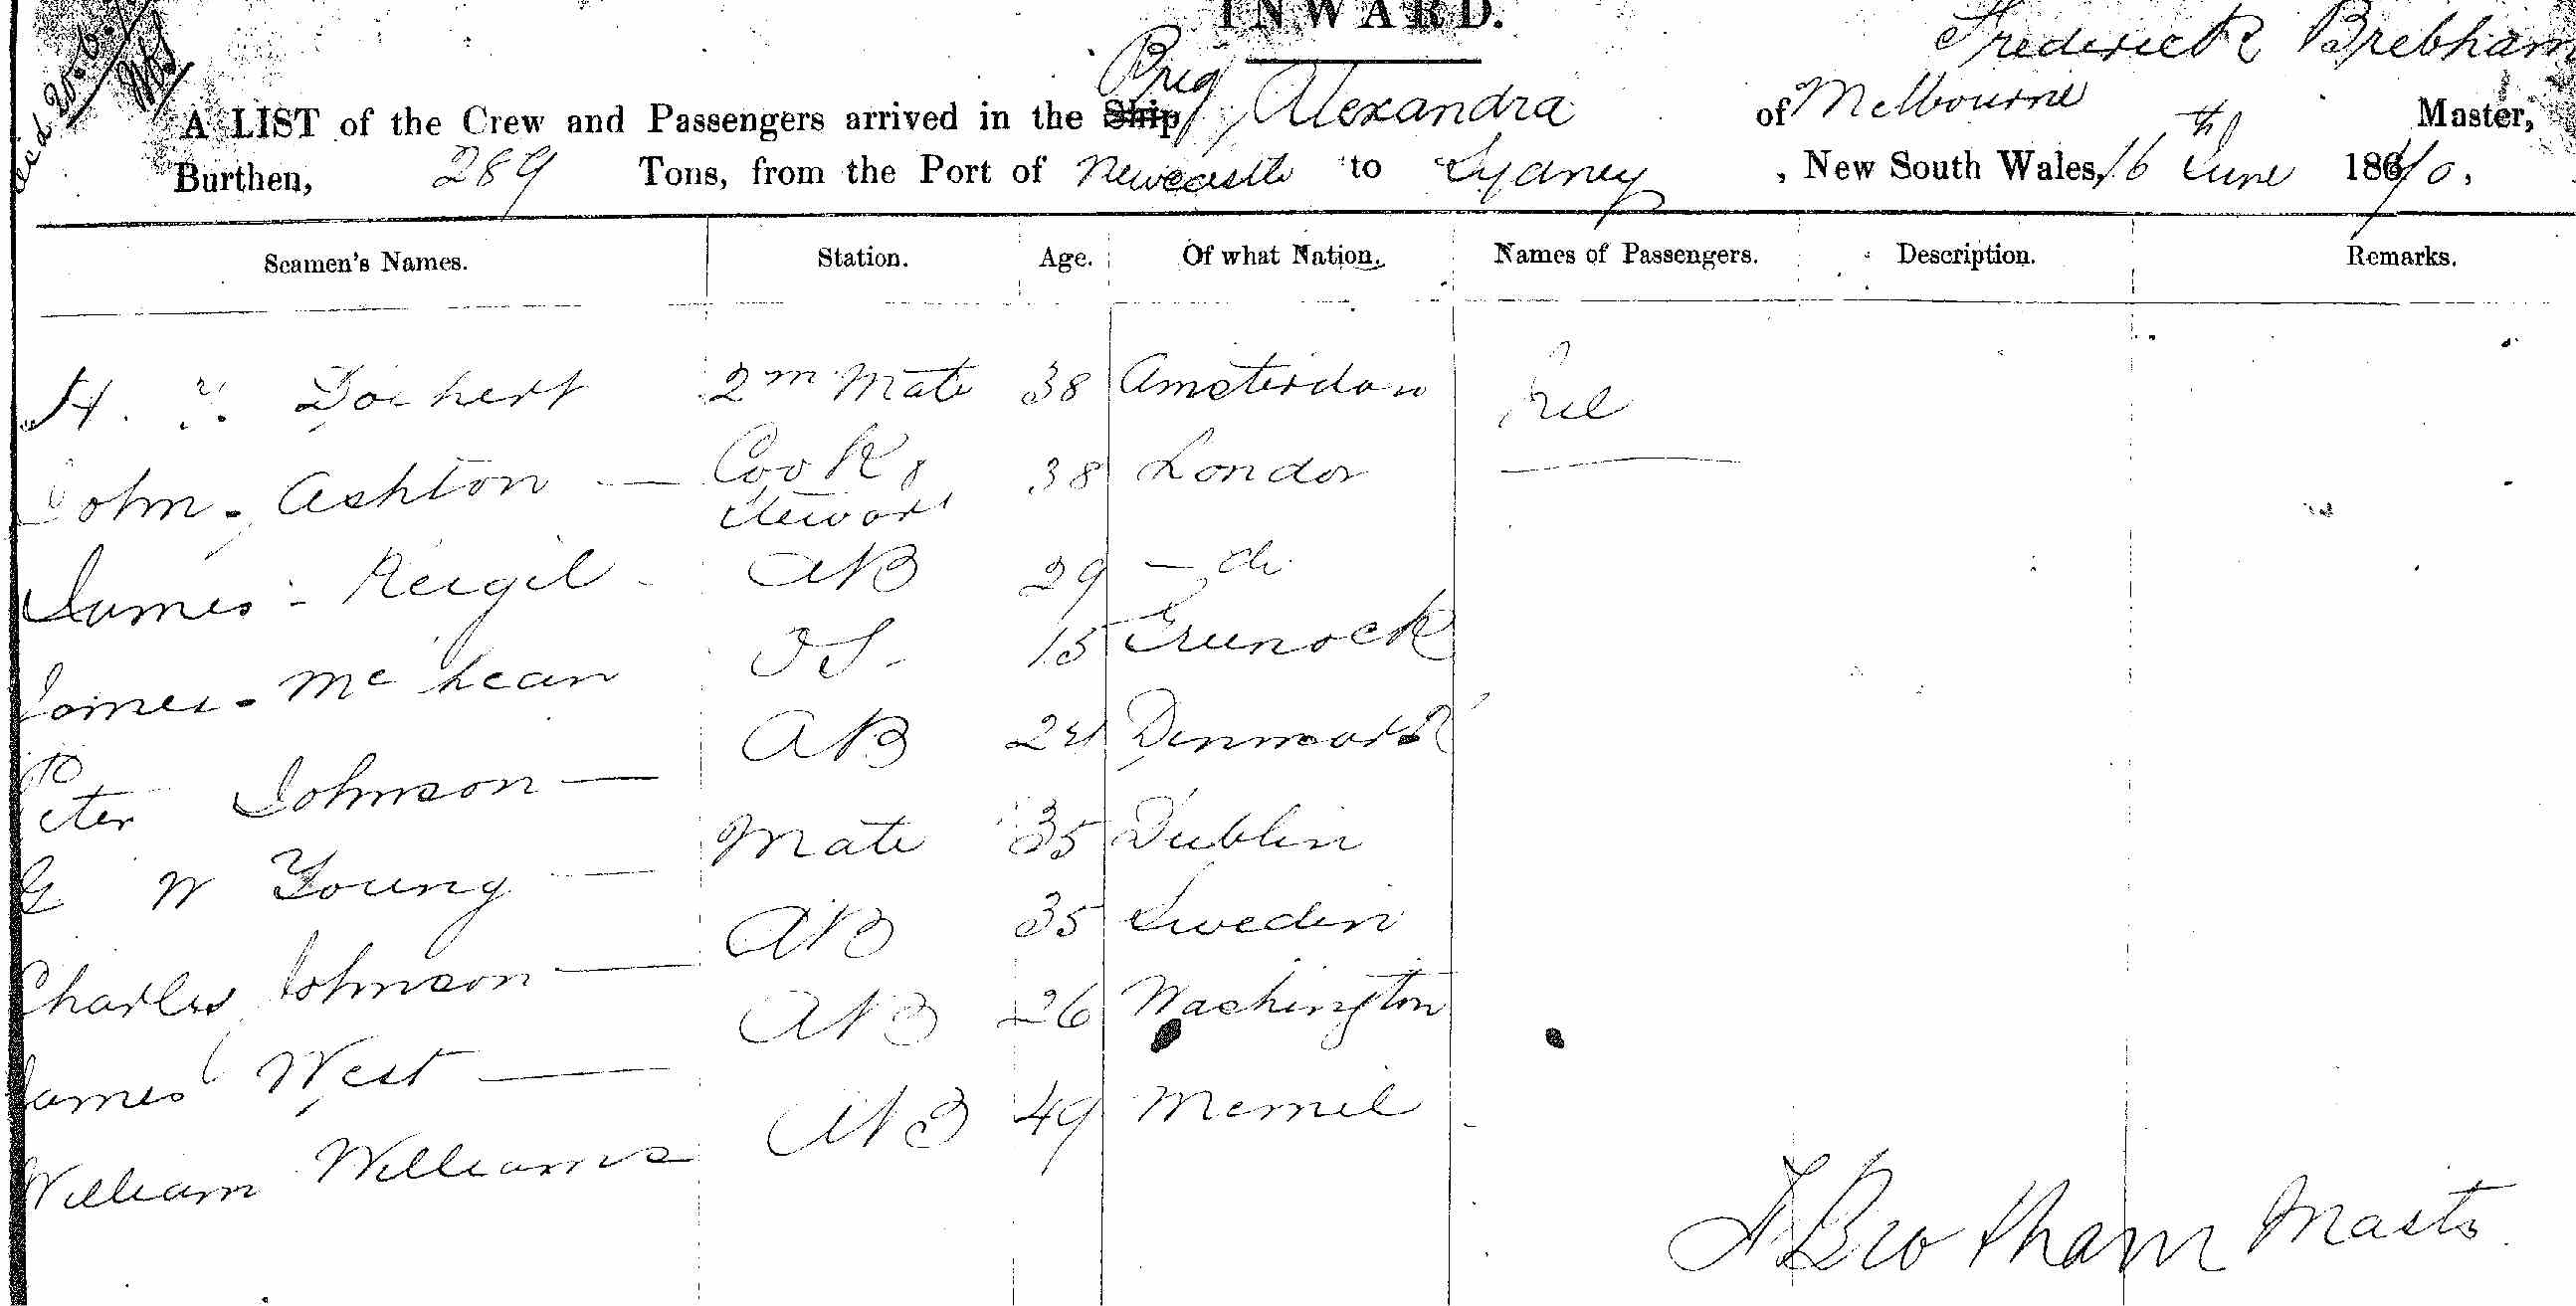 INWARD.
Frederick Brebham
A LIST of the Crew and Passengers arrived in the Ship Brig Alexandra of Melbourne Master,
Burthen, 289 Tons, from the Port of Newcastle to Sydney, New South Wales, 16th June 1870,
Seamen's Names. Station. Age. Of what Nation. Names of Passengers. Description. Remarks.
H. 2nd Mate 38 Amsterdam
John Ashton — Cook & 38 London
Steward
James - AB 29 — do
James - Mc Lean OS - 15 Greenock
Peter Johnson — AB 24 Denmark
G W Young — Mate 35 Dublin
Charles Johnson — AB 35 Sweden
James West — AB 26 Washington
William Williams AB 49 Memel
F Brotham Master